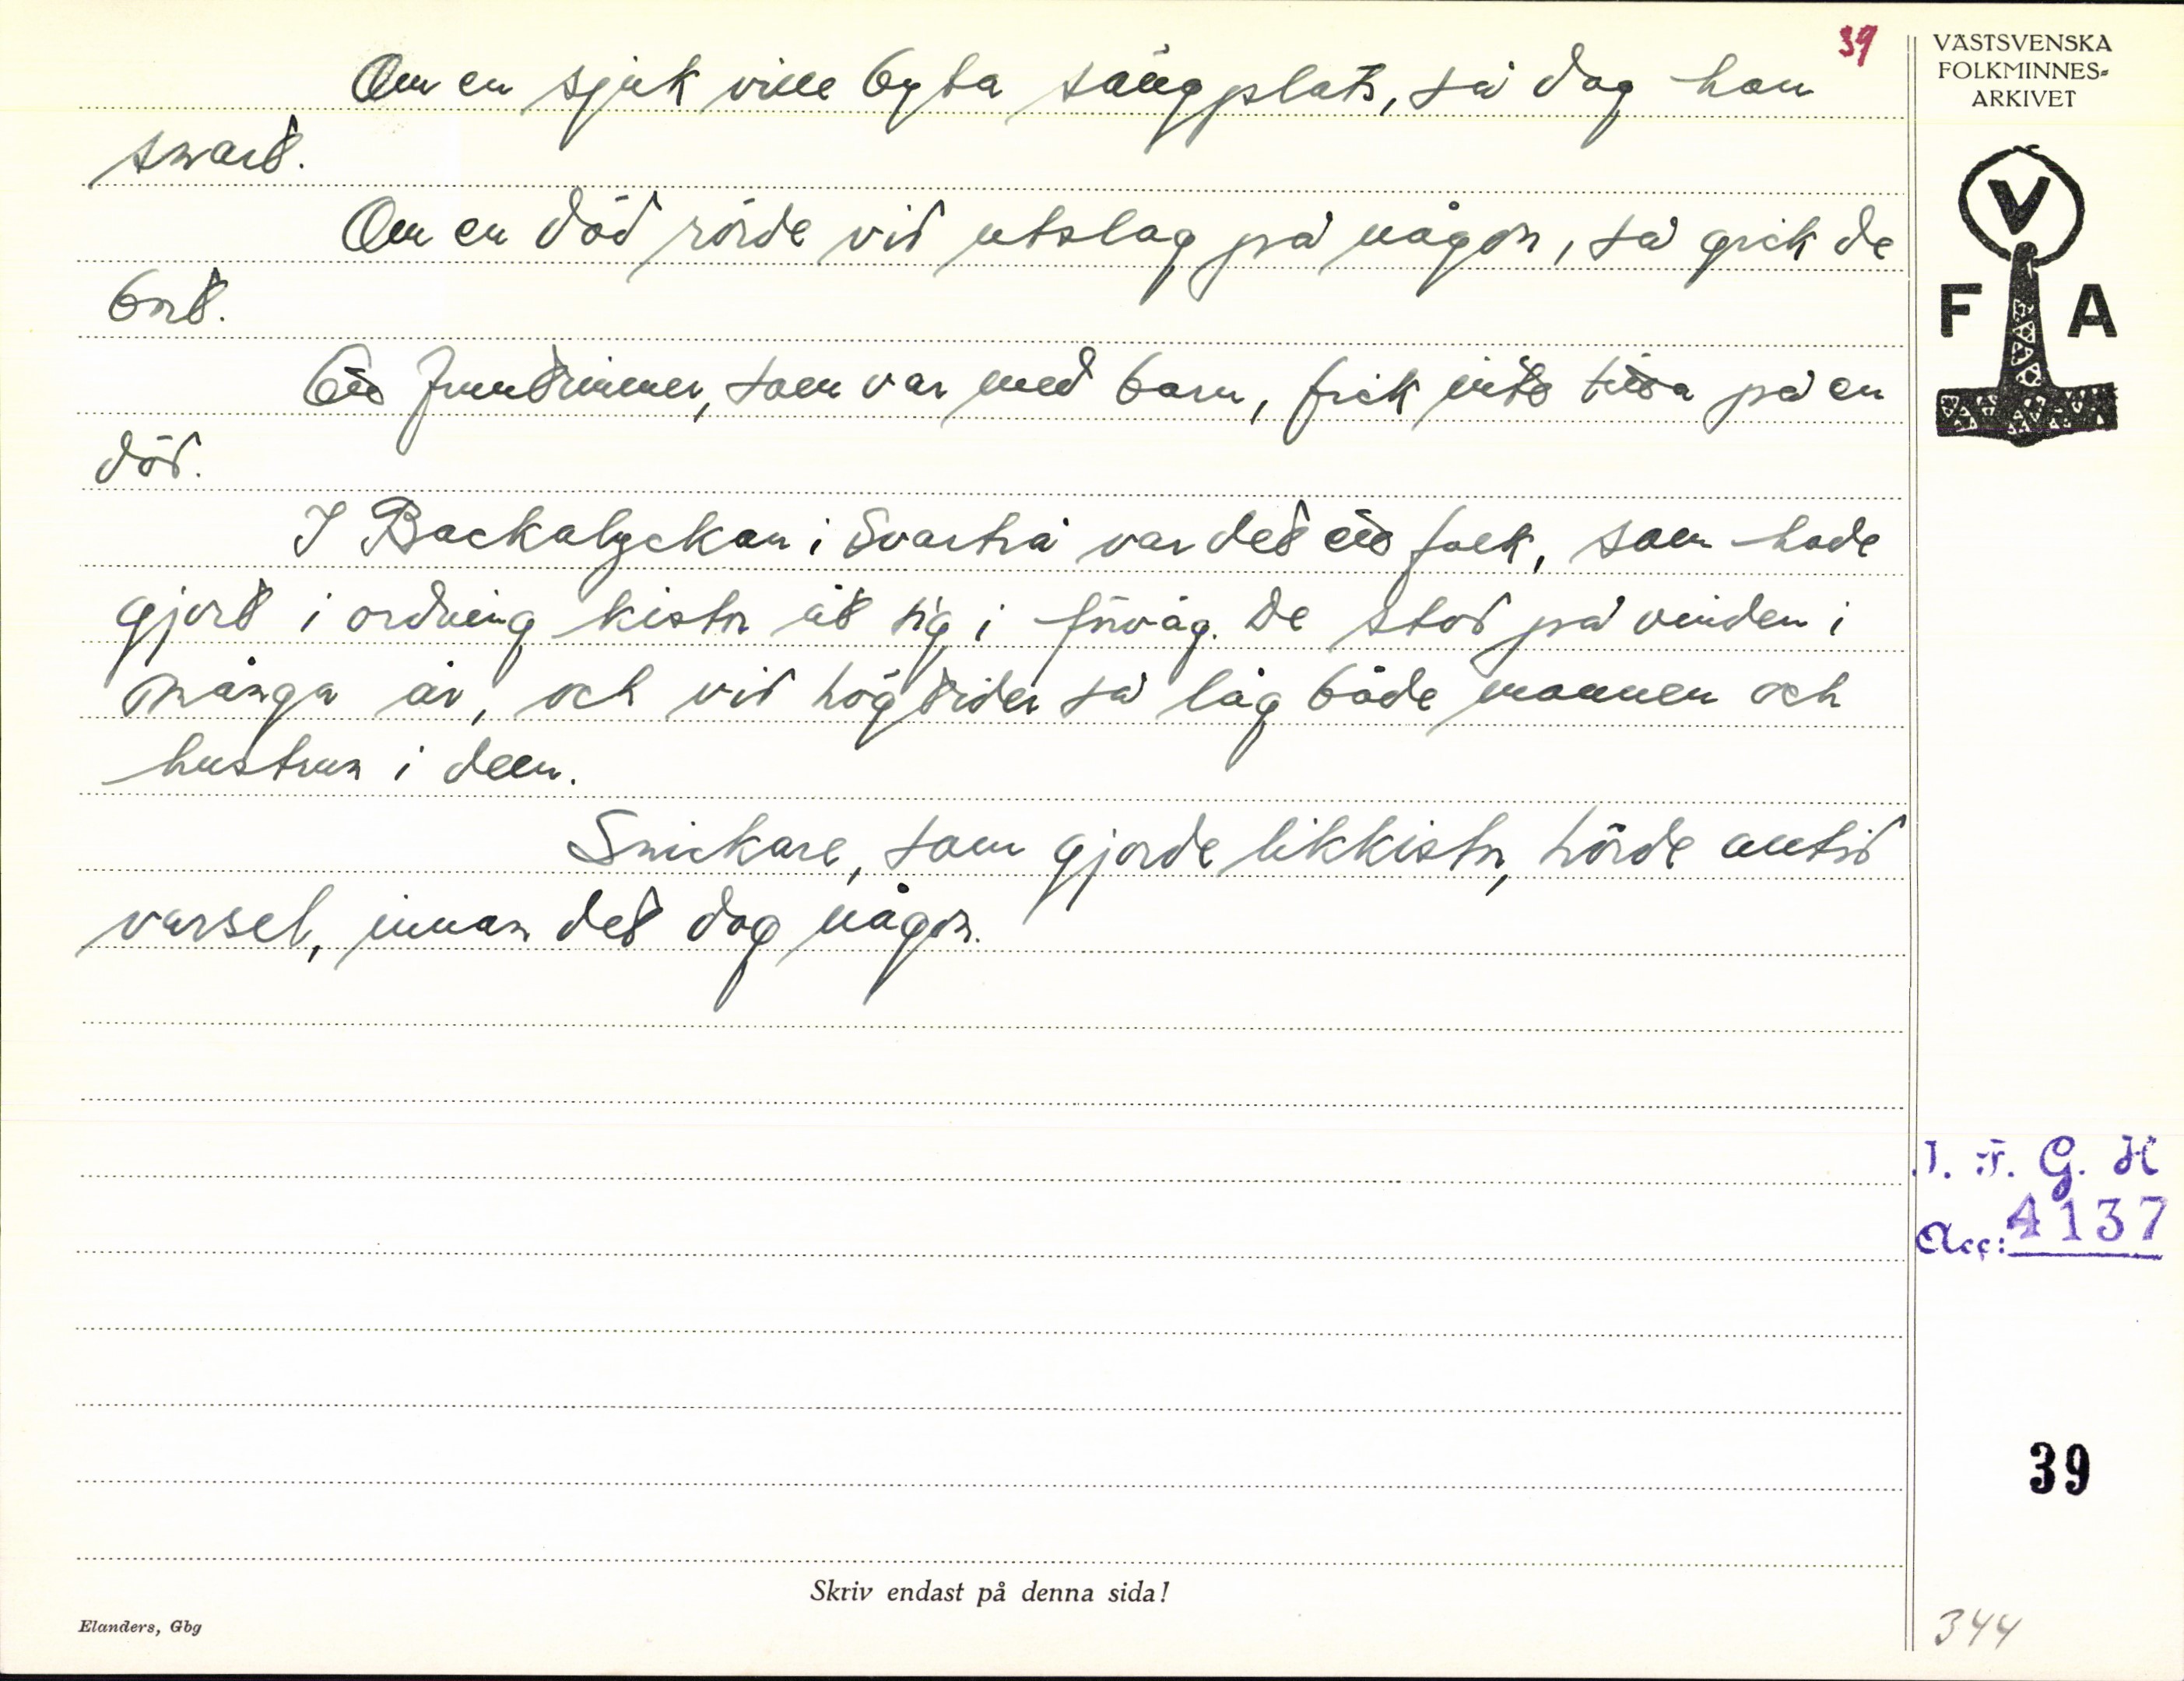 39
Om en sjuk ville byta sängplats, så dog han
snart.
Om en död rörde vid utslag på någon, så gick de
bort.
Ett fruntimmer, som var med barn, fick inte titta på en
död.
I Backalyckan i Svartrå var det ett folk, som hade
gjort i ordning kistor åt sig i förväg. De stod på vinden i
många år, och vid högtider så låg både mannen och
hustrun i dem.
Snickare, som gjorde likkistor, hörde alltid
varsel, innan det dog någon.
VÄSTSVENSKA
FOLKMINNES-
ARKIVET
V
F A
I. F. G. H
Acc: 4137
39
Skriv endast på denna sida!
Elanders, Gbg
344